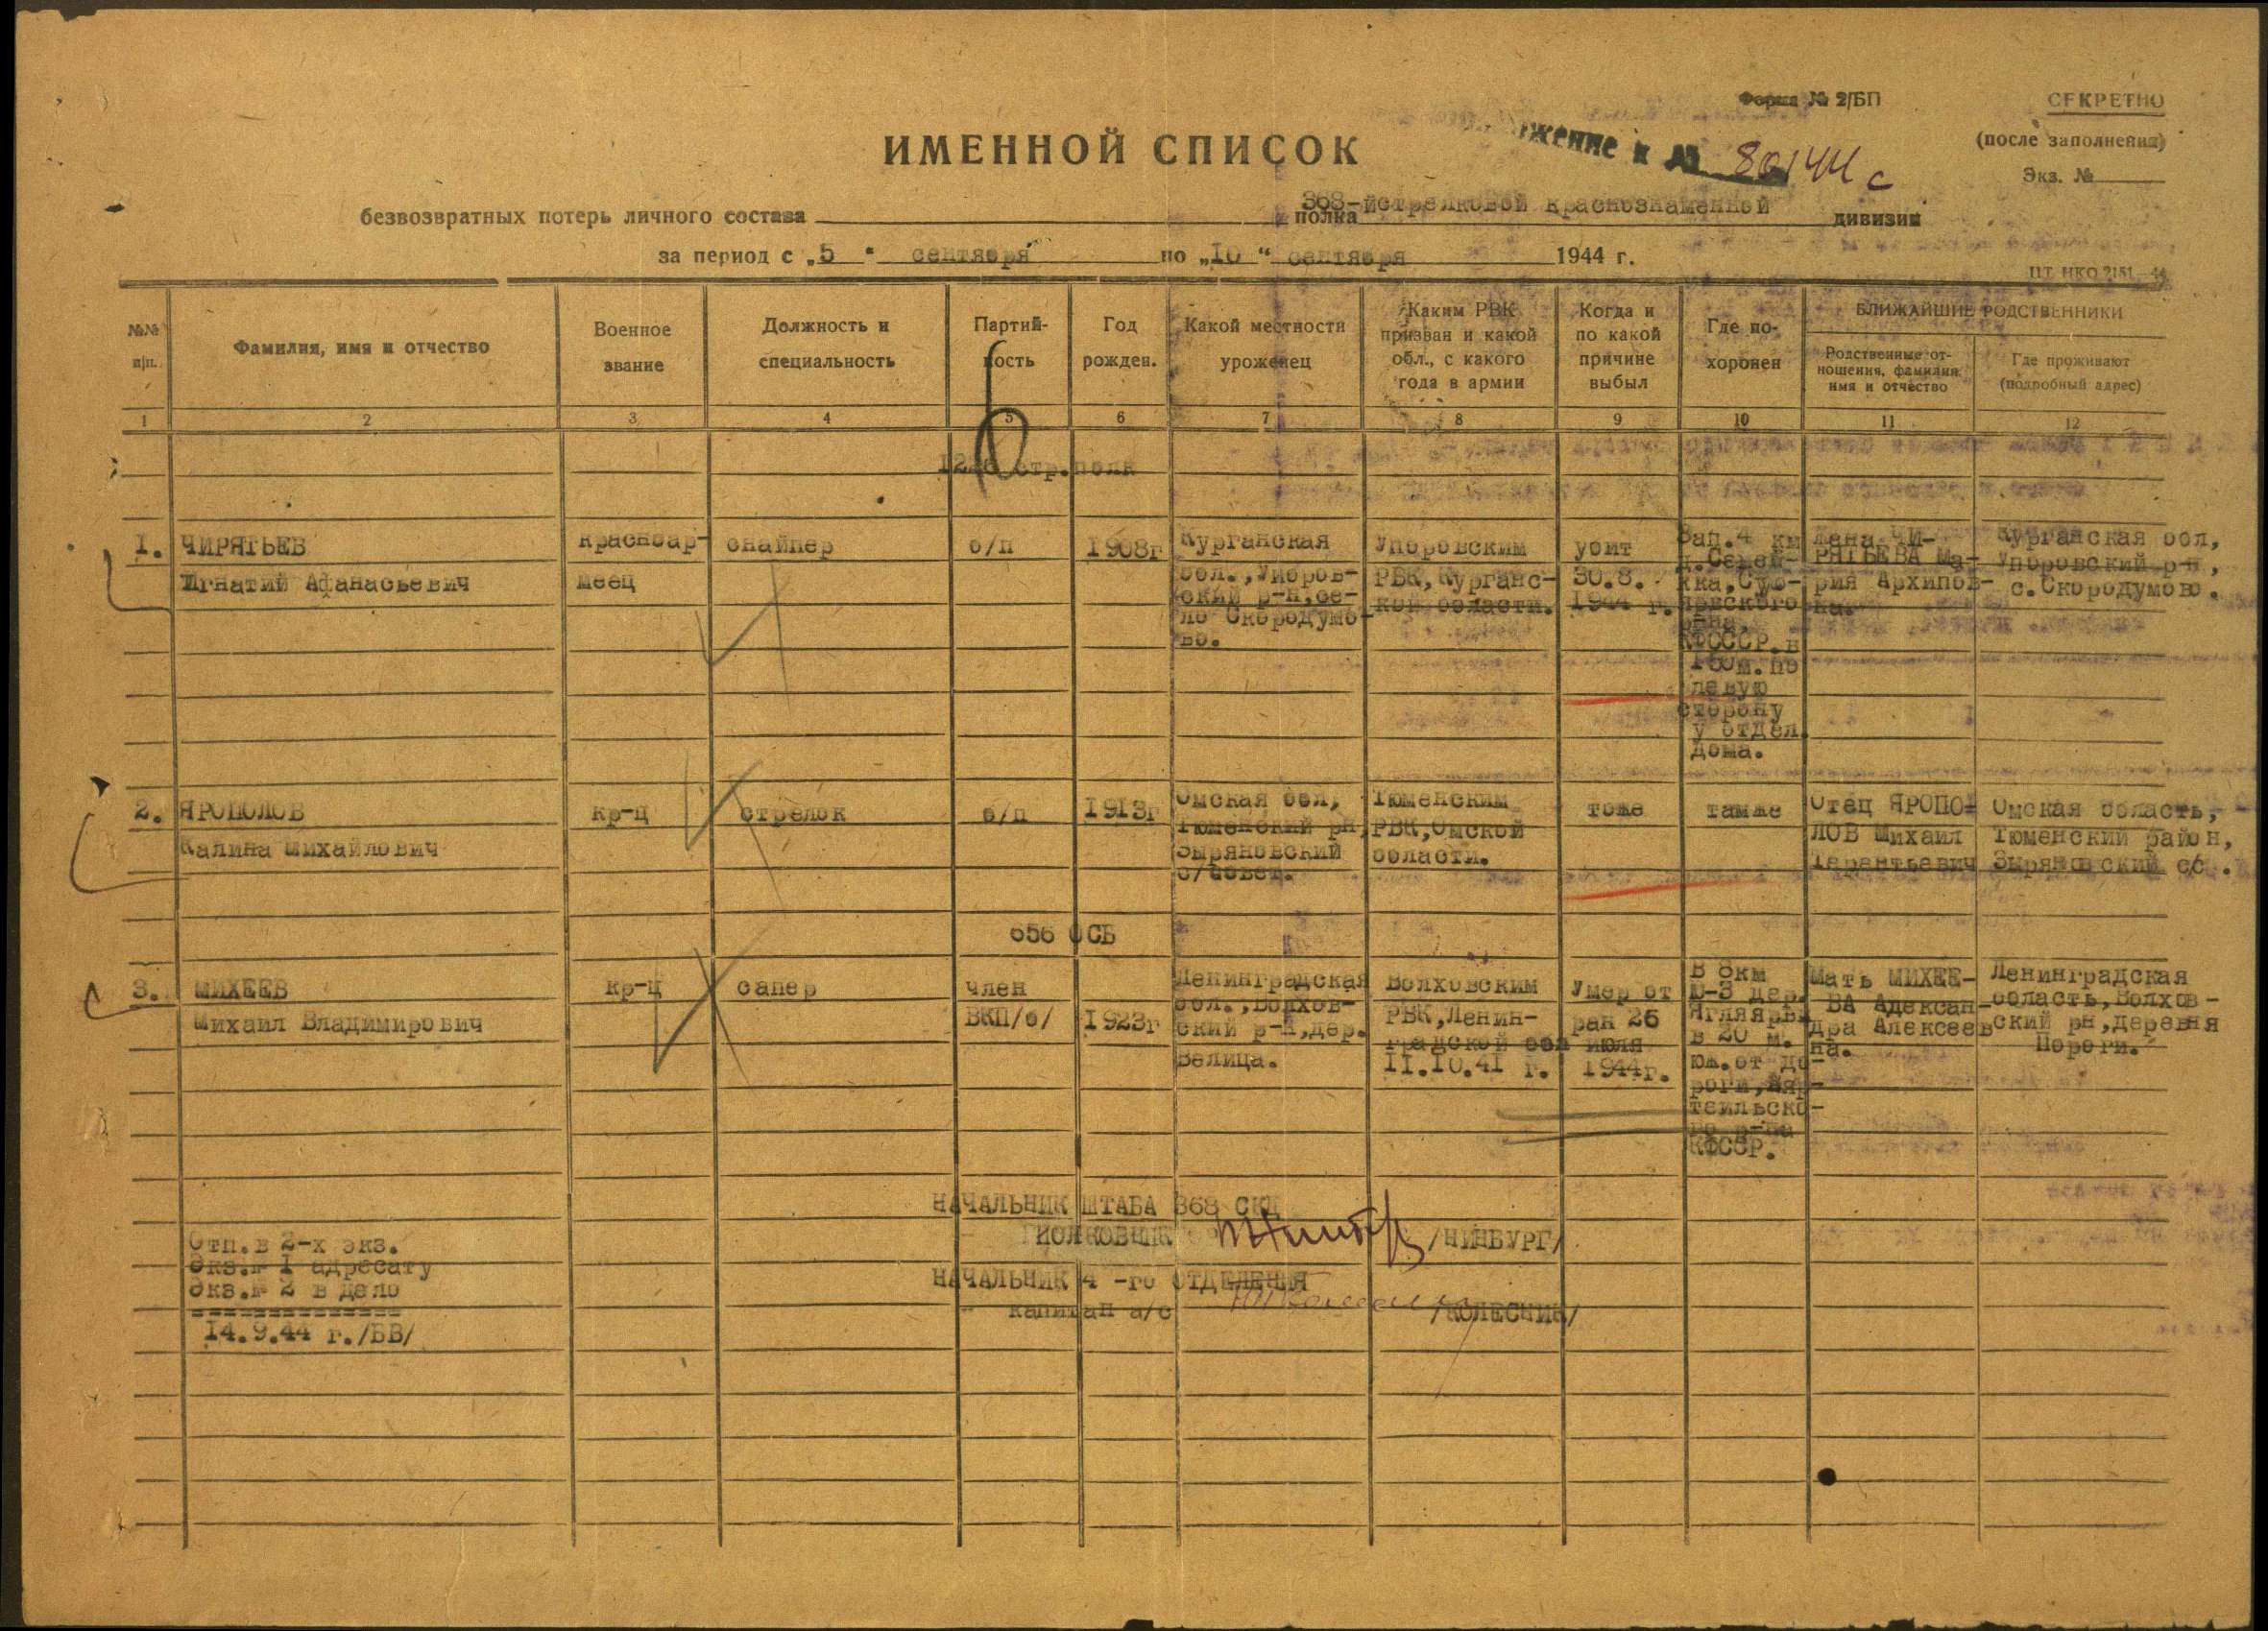 Форма № 2/БП
СЕКРЕТНО
(после заполнения)
Экз. №
жение к № 80144 с
ИМЕННОЙ СПИСОК
безвозвратных потерь личного состава полка 368-й стрелковой Краснознаменной дивизии
за период с „5 “ сентября по „10 “ сентября 1944 г.
ЦТ. НКО 2151—44
№№ п/п.
Фамилия, имя и отчество
Военное звание
Должность и специальность
Партий- ность
Год рожден.
Какой местности уроженец
Каким РВК призван и какой обл., с какого года в армии
Когда и по какой причине выбыл
Где по- хоронен
БЛИЖАЙШИЕ РОДСТВЕННИКИ
Родственные от- ношения, фамилия, имя и отчество
Где проживают (подробный адрес)
1 2 3 4 5 6 7 8 9 10 11 12
стр.полк
1. ЧИРЯТЬЕВ
Игнатий Афанасьевич
красноар-
меец
снайпер
б/п
1908г
Курганская
обл.,Упоров-
ский р-н,се-
ло Скородумо-
во.
Упоровским
РВК,Курганс-
кой области.
убит
30.8.
1944 г.
Зап.4 км
КФССР.в
150м.по
левую
сторону
у отдел.
дома.
Жена ЧИ-
РЯТЬЕВА Ма-
рия Архипов-
на.
Курганская обл,
Упоровский р-н,
с.Скородумово.
2. ЯРОПОЛОВ
Калина Михайлович
кр-ц
стрелок
б/п
1913г
Омская обл,
Тюменский рн,
Зыряновский
с/совет.
Тюменским
РВК,Омской
области.
тоже
тамже
Отец ЯРОПО-
ЛОВ Михаил
Терентьевич
Омская область,
Тюменский район,
Зыряновский с/с.
656 ОСБ
3. МИХЕЕВ
Михаил Владимирович
кр-ц
сапер
член
ВКП/б/
1923г
Ленинградская
обл.,Волхов-
ский р-н,дер.
Велица.
Волховским
РВК,Ленин-
градской обл
11.10.41 г.
Умер от
ран 26
июля
1944г.
В 8км
Ю-З дер.
Ягляярви
в 20 м.
юж.от до-
роги,
тсильско-
го р-на
КФССР.
Мать МИХЕЕ-
ВА Алексан-
дра Алексеев-
на.
Ленинградская
область,Волхов-
ский рн,деревня
Пороги.
НАЧАЛЬНИК ШТАБА 368 СКД
ПОЛКОВНИК /НИНБУРГ/
НАЧАЛЬНИК 4 -го ОТДЕЛЕНИЯ
капитан а/с /КОЛЕСНИК/
Отп.в 2-х экз.
Экз.№ 1 адресату
Экз.№ 2 в дело
==============
14.9.44 г./БВ/